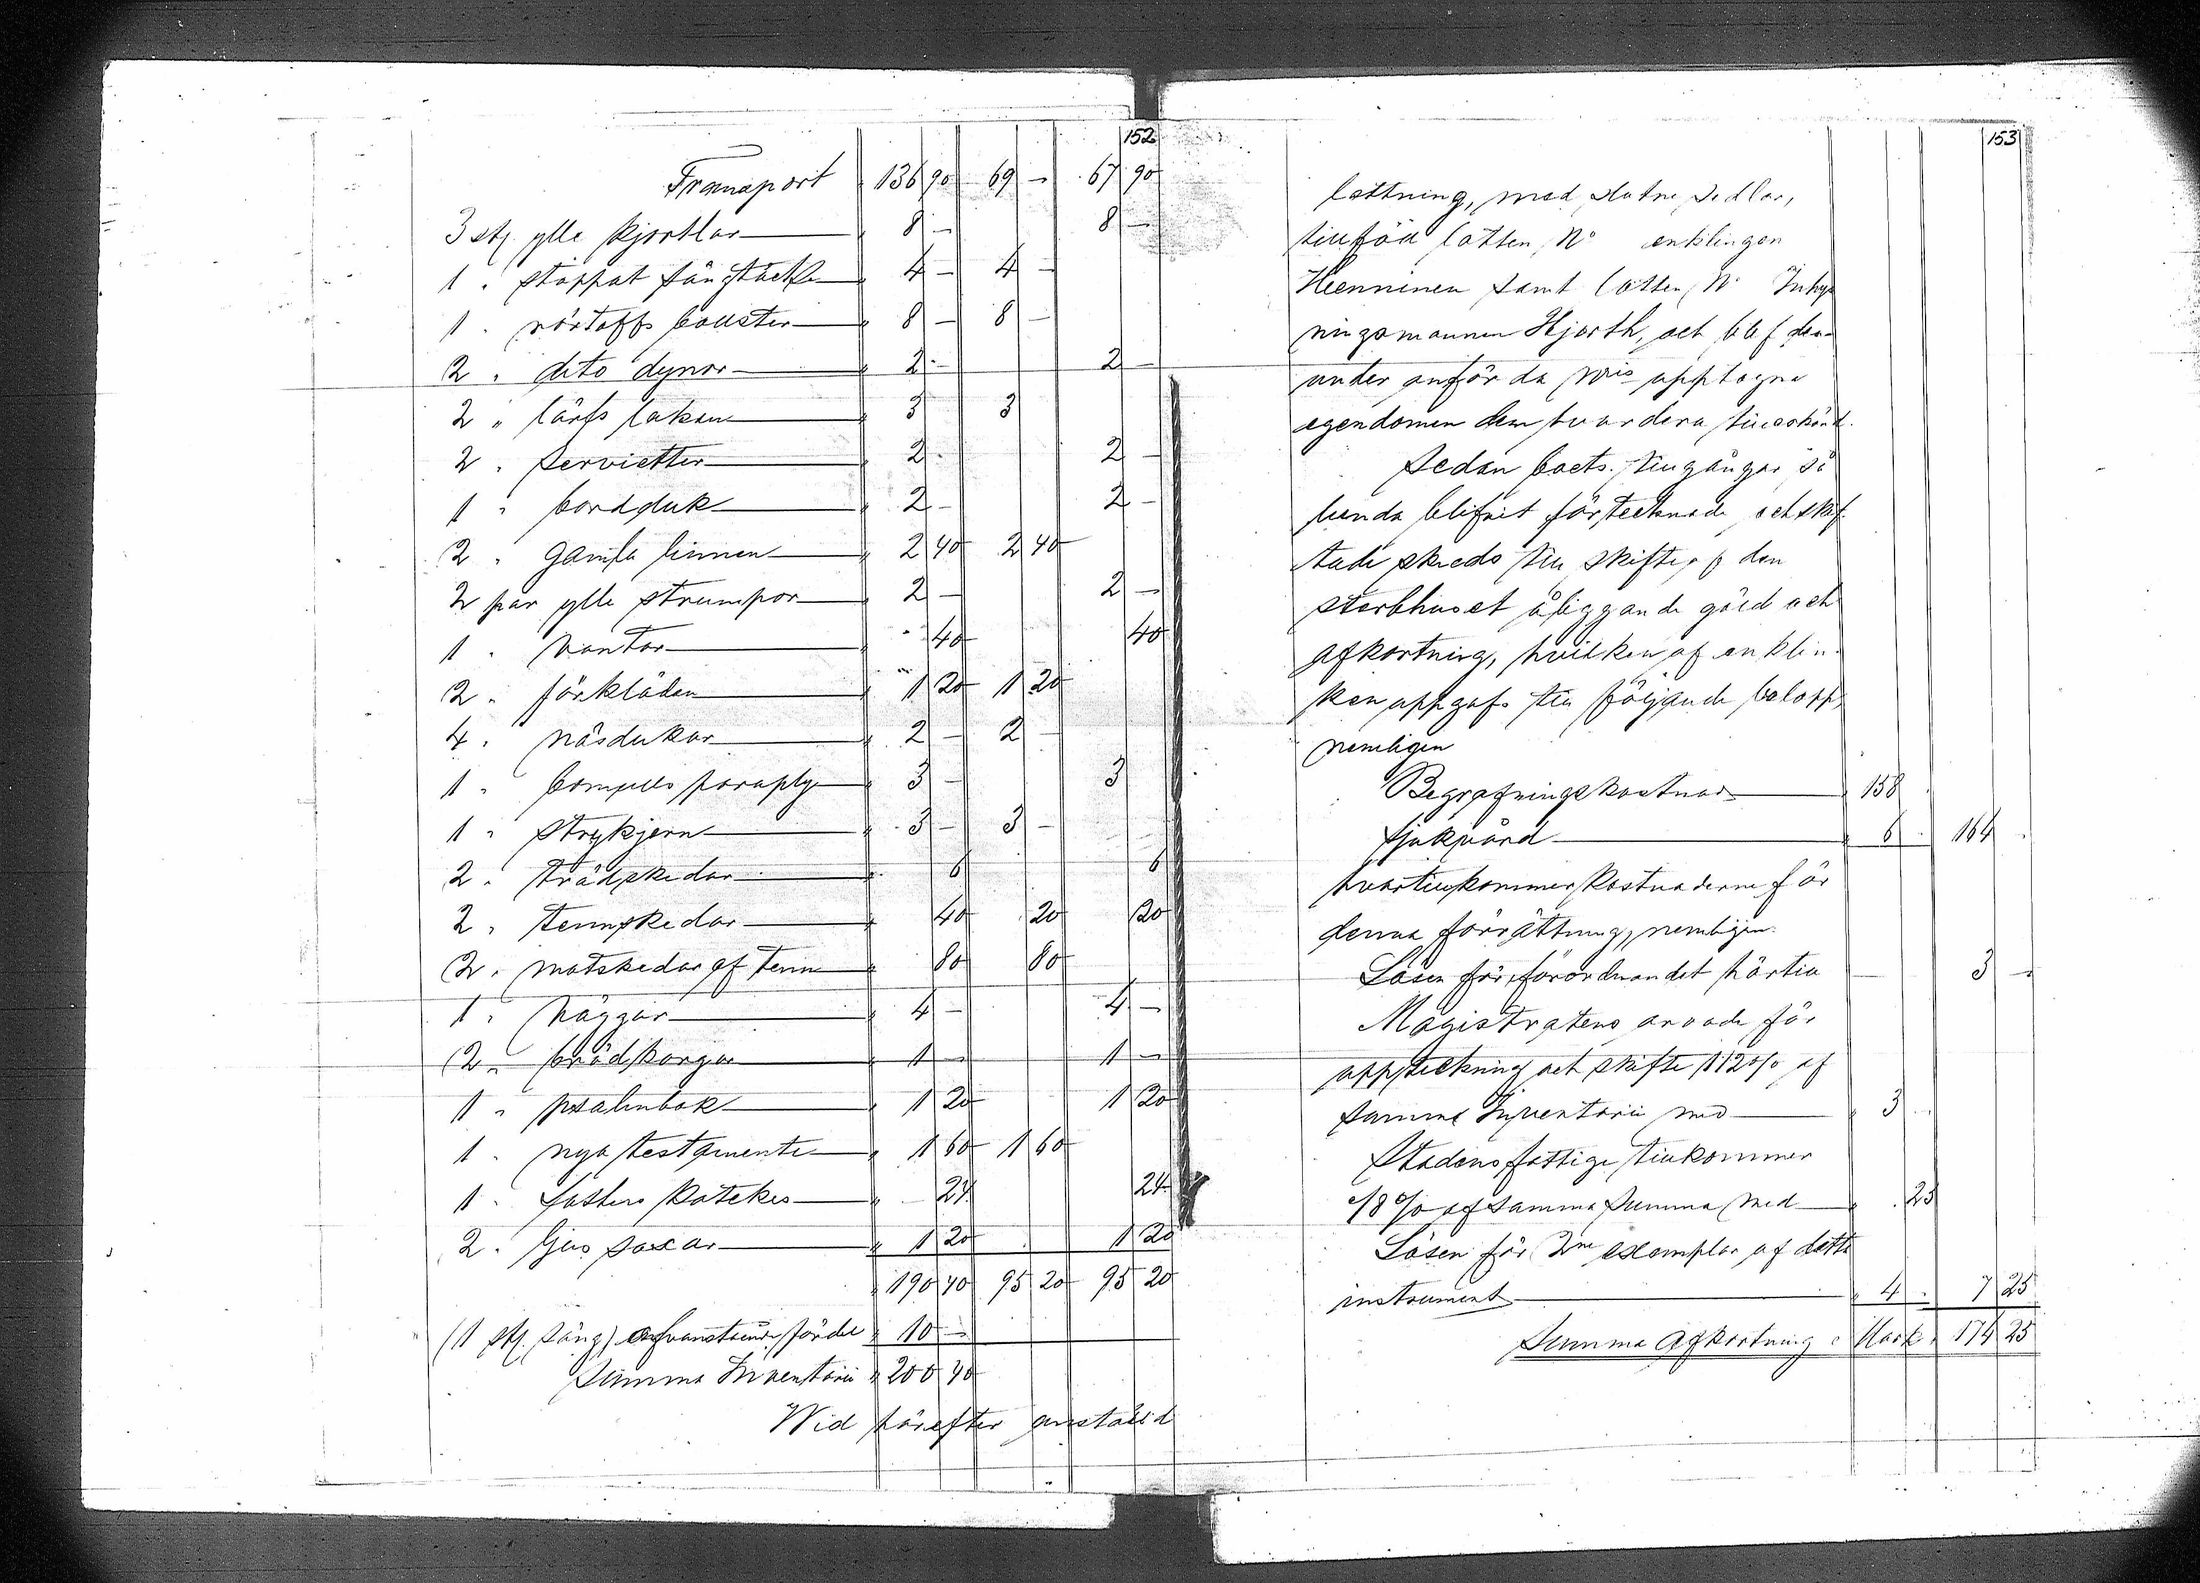 152
Transport 136 90 69 – 67 90
3 st. ylle kjortlar 8 – 8 –
1 " stoppat sängtäcke 4 – 4 –
1 " bolster 8 – 8 –
2 " dito dynor 2 – 2 –
2 " lärfs lakan 3 3
2 " servietter 2 – 2 –
1 " bordduk 2 – 2 –
2 " gamla linnen 2 40 2 40
2 par ylle strumpor 2 – 2 –
1 " vantar 40 40
2 " förkläden 1 20 1 20
4 " näsdukar 2 – 2 –
1 " bomulls paraply 3 – 3
1 " strykjern 3 – 3 –
2 " trädskedar 6 6
2 " tennskedar 40 20 20
2 " matskedar af tenn 80 80
1 " häggar 4 – 4 –
2 " brödkorgar 1 – 1 –
1 " psalmbok 1 20 1 20
1 " nya testamente 1 60 1 60
1 " katekes 24 24
2 " ljus saxar 1 20 1 20
190 40 95 20 95 20
(1 st. säng) fördel 10 –
Summa Inventarii 200 40
Wid härefter anställd
153
lottning, med slutna sedlar,
tillföll lotten No enklingen
Heenninen samt lotten No Inhys
ningsmannen Hjorth, och blef der
under anförda No upptagna
egendomen dem hvardera tillerkänd.
Sedan boets tillgångar så
lunda blifvit förtecknade och skif
tade skreds till skifte af den
sterbhuset åliggande gäld och
afkortning, hvilken af enklin
gen uppgafs till följande belopp,
nemligen
Begrafningskostnad 158
sjukvård 6 164
hvartill kommer kostnaderne för
denna förrättning, nemligen
Lösen för förordnandet härtill 3 –
Magistratens arvode för
uppteckning och skifte 1 1/2 % af
summa Inventarii med 3
Stadens fattige tillkommer
1/8 % af samma summa med 25
Lösen för 2ne exemplar af detta
instrument 4 7 25
Summa Afkortning Mark 174 25